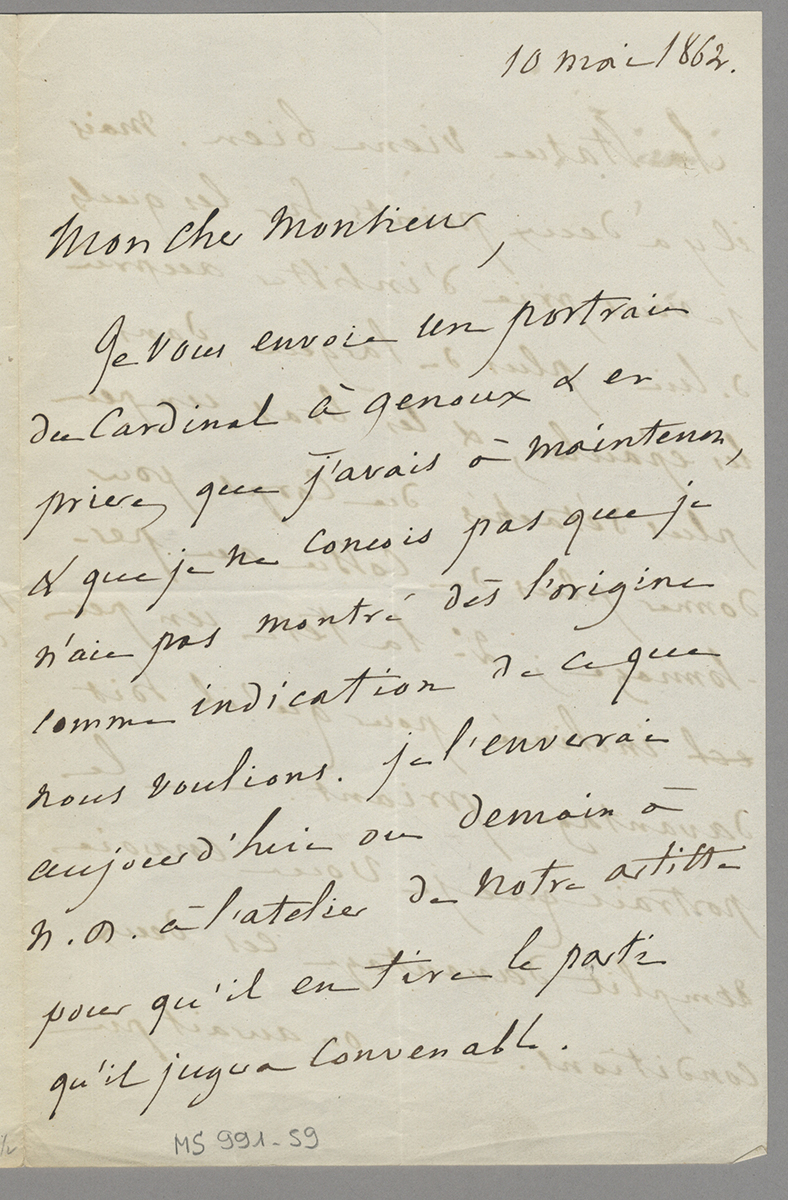 10 mai 1862.
Mon cher Monsieur,
Je vous envoie un portrait
du Cardinal à genoux & en
priere, que j'avais à maintenon,
& que je ne concois pas que je
n'aie pas montré dès l'origine
comme indication de ce que
nous voulions. je l'enverrai
aujourd'hui ou demain à
n. D. à l'atelier de notre artiste
pour qu'il en tire le parti
qu'il jugera convenable.
MS 991-59